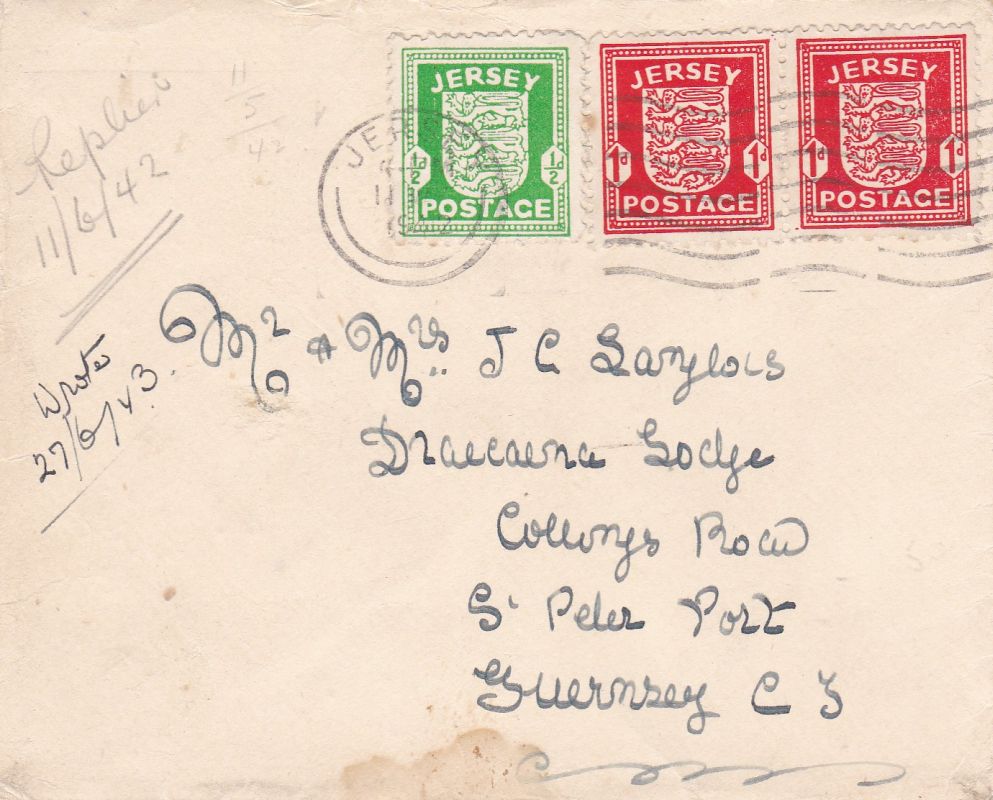 JERSEY JERSEY JERSEY
½d ½d 1d 1d 1d 1d
POSTAGE POSTAGE POSTAGE
JERSEY
11
5
42
Replied
11/6/42
Wrote
27/6/43
Mr & Mrs J C Langlois
Dracaena Lodge
Collings Road
St Peter Port
Guernsey C I